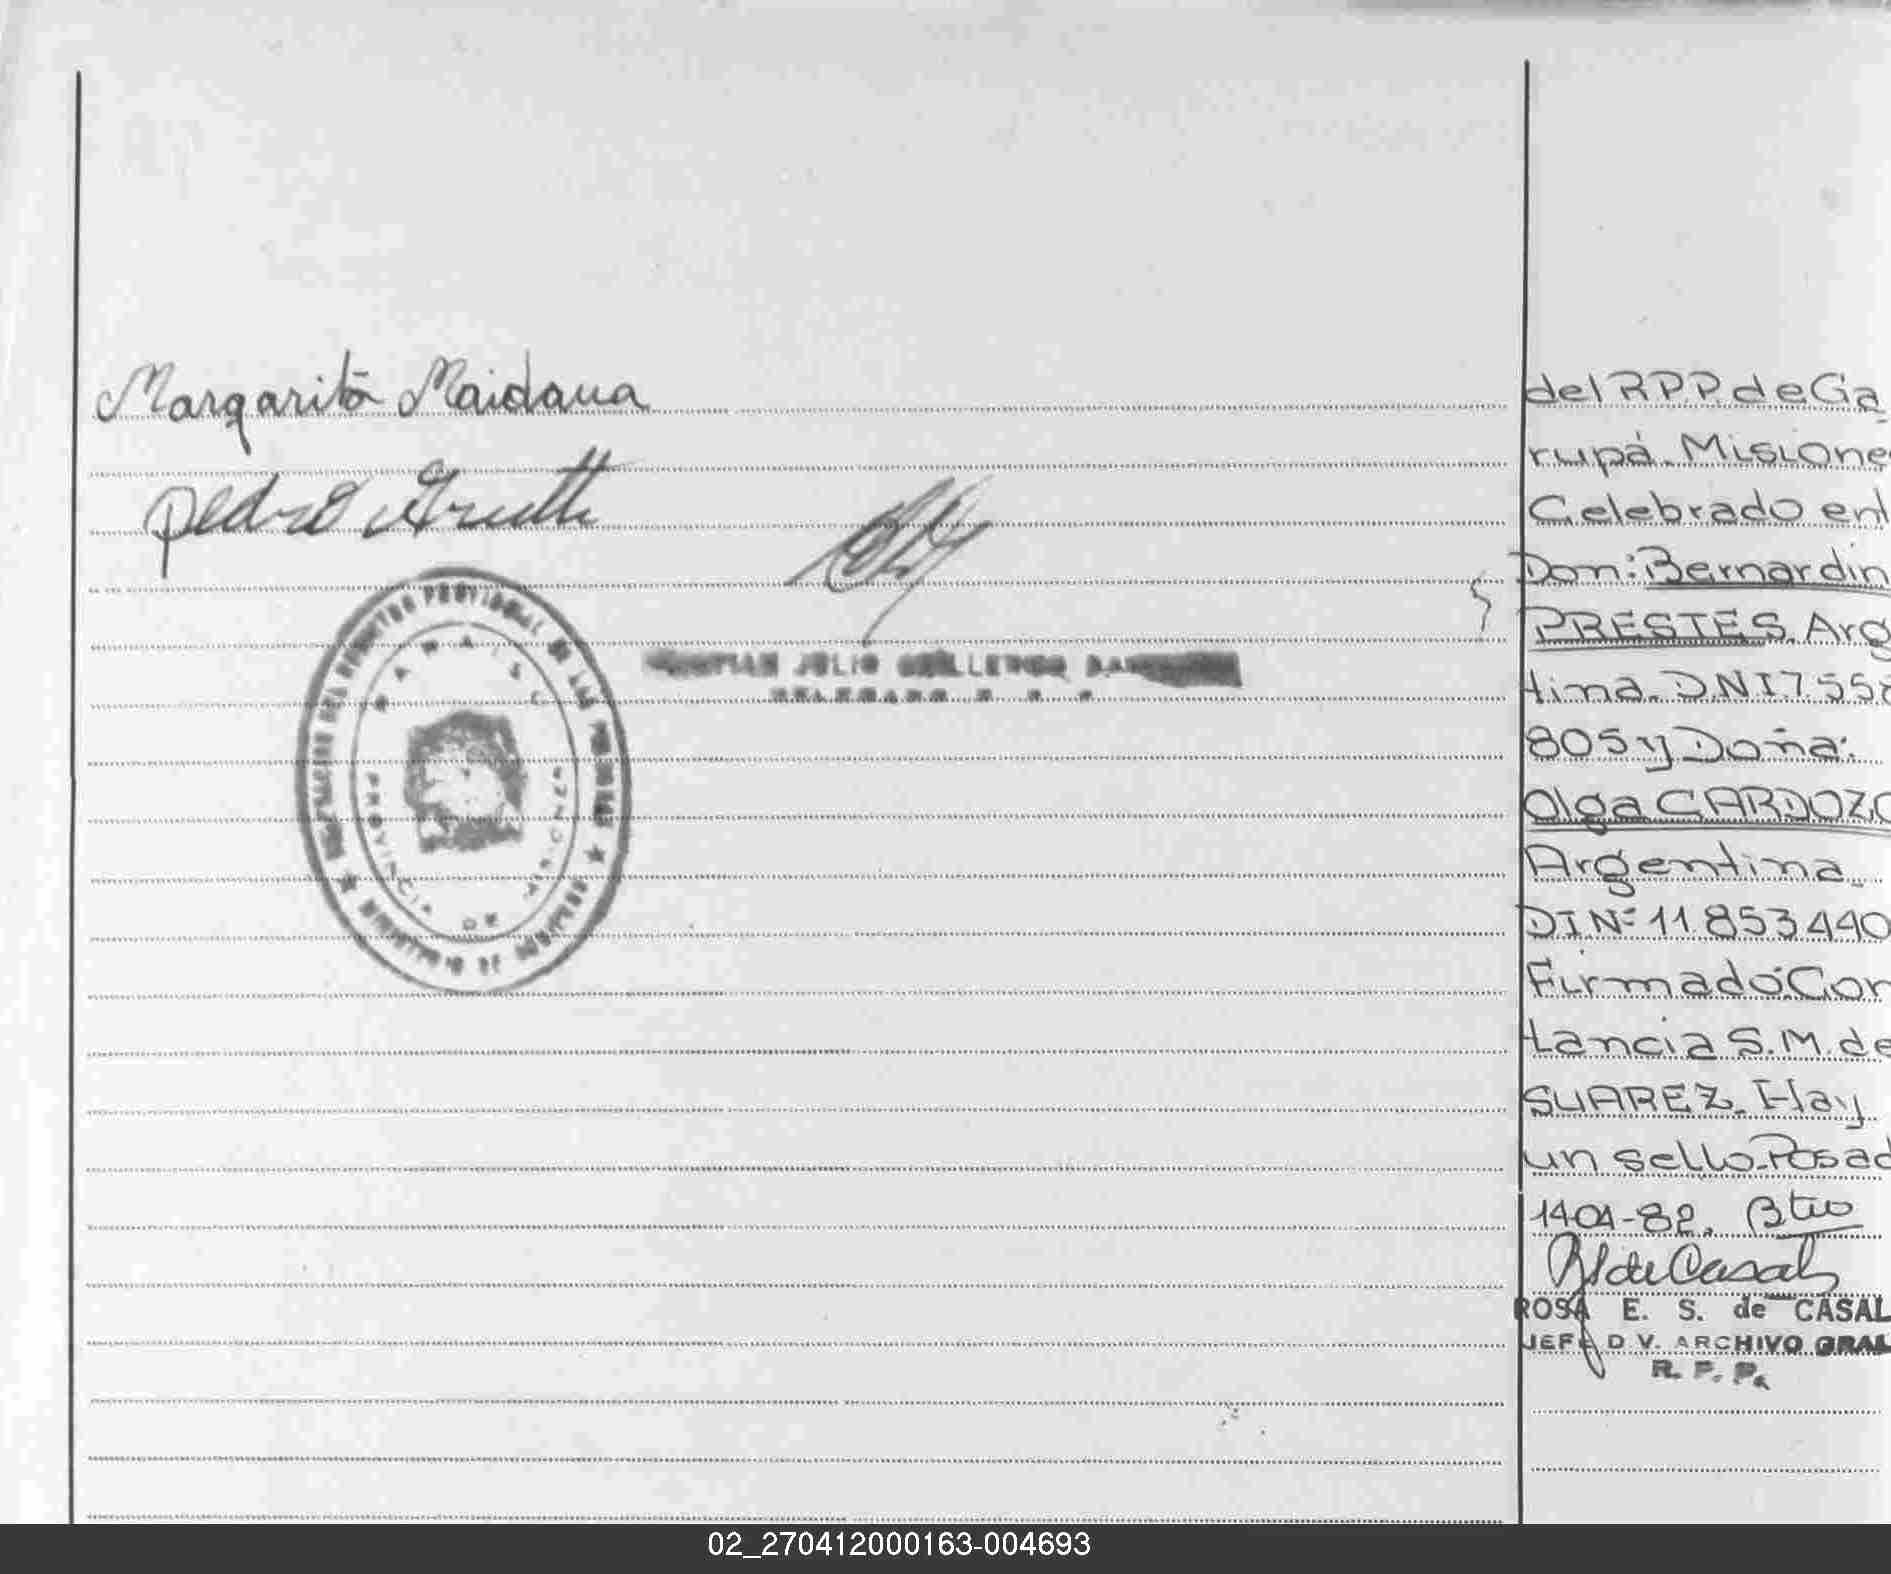 Margarita Maidana
Pedro
JULIO GUILLERMO
DELEGADO R. P. P.
PROVINCIA DE MISIONES
del R.P.P. de Ga
rupá. Misione
Celebrado ent
Don: Bernardin
PRESTES. Arg
tina. D.N.I 7.558
805 y Doña:
Olga CARDOZO
Argentina.
DI Nº 11.853440
Firmado: Con
tancia S.M. de
SUAREZ. Hay
un sello. Posad
14-01-82.
ROSA E. S. de CASAL
JEFE D V. ARCHIVO GRAL
R. P. P.
02_270412000163-004693